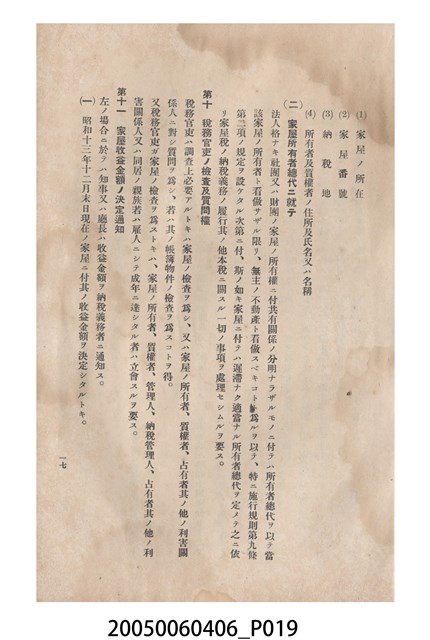 (1) 家屋ノ所在
(2) 家屋番號
(3) 納稅地
(4) 所有者及質權者ノ住所及氏名又ハ名稱
(二) 家屋所有者總代ニ就テ
法人格ナキ社團又ハ財團ノ家屋ノ所有權ニ付共有關係ノ分明ナラザルモノニ付テハ所有者總代ヲ以テ當
該家屋ノ所有者ト看做サザル限リ、無主ノ不動產ト看做スベキコトト爲ルヲ以テ、特ニ施行規則第九條
第二項ノ規定ヲ設ケタル次第ニ付、斯ノ如キ家屋ニ付テハ遲滯ナク適當ナル所有者總代ヲ定メテ之ニ依
リ家屋稅ノ納稅義務ノ履行其ノ他本稅ニ關スル一切ノ事項ヲ處理セシムルヲ要ス。
第十 稅務官吏ノ檢査及質問權
稅務官吏ハ調査上必要アルトキハ家屋ノ檢査ヲ爲シ、又ハ家屋ノ所有者、質權者、占有者其ノ他ノ利害關
係人ニ對シ質問ヲ爲シ、若ハ其ノ帳簿物件ノ檢査ヲ爲スコトヲ得。
又稅務官吏ガ家屋ノ檢査ヲ爲ストキハ、家屋ノ所有者、質權者、管理人、納稅管理人、占有者其ノ他ノ利
害關係人又ハ同居ノ親族若ハ雇人ニシテ成年ニ達シタル者ハ立會スルヲ要ス。
第十一 家屋收益金額ノ決定通知
左ノ場合ニ於テハ知事又ハ廳長ハ收益金額ヲ納稅義務者ニ通知ス。
(一) 昭和十三年十二月末日現在ノ家屋ニ付其ノ收益金額ヲ決定シタルトキ。
一七
20050060406_P019